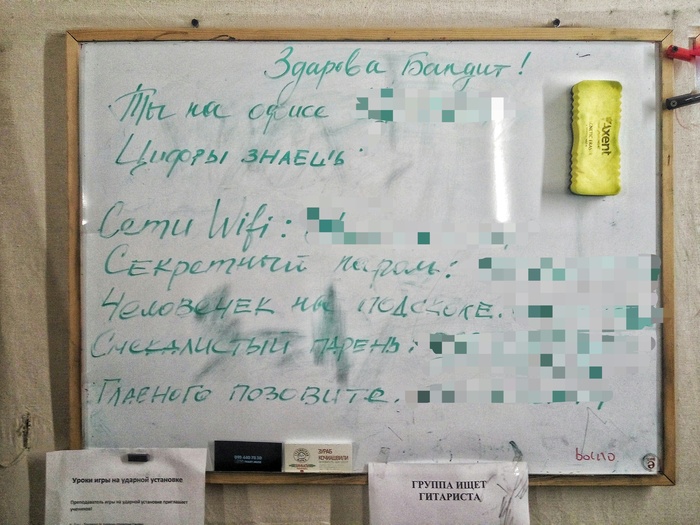 Здарова Бандит!
Ты на офисе
Цифры знаешь
Axent
Сети Wifi:
Секретный пароль:
Человечек на подскоке.
Смекалистый парень:
Главного позовите.
ЗУРАБ
Уроки игры на ударной установке
Преподаватель игры на ударной установке приглашает
учеников!
ГРУППА ИЩЕТ
ГИТАРИСТА